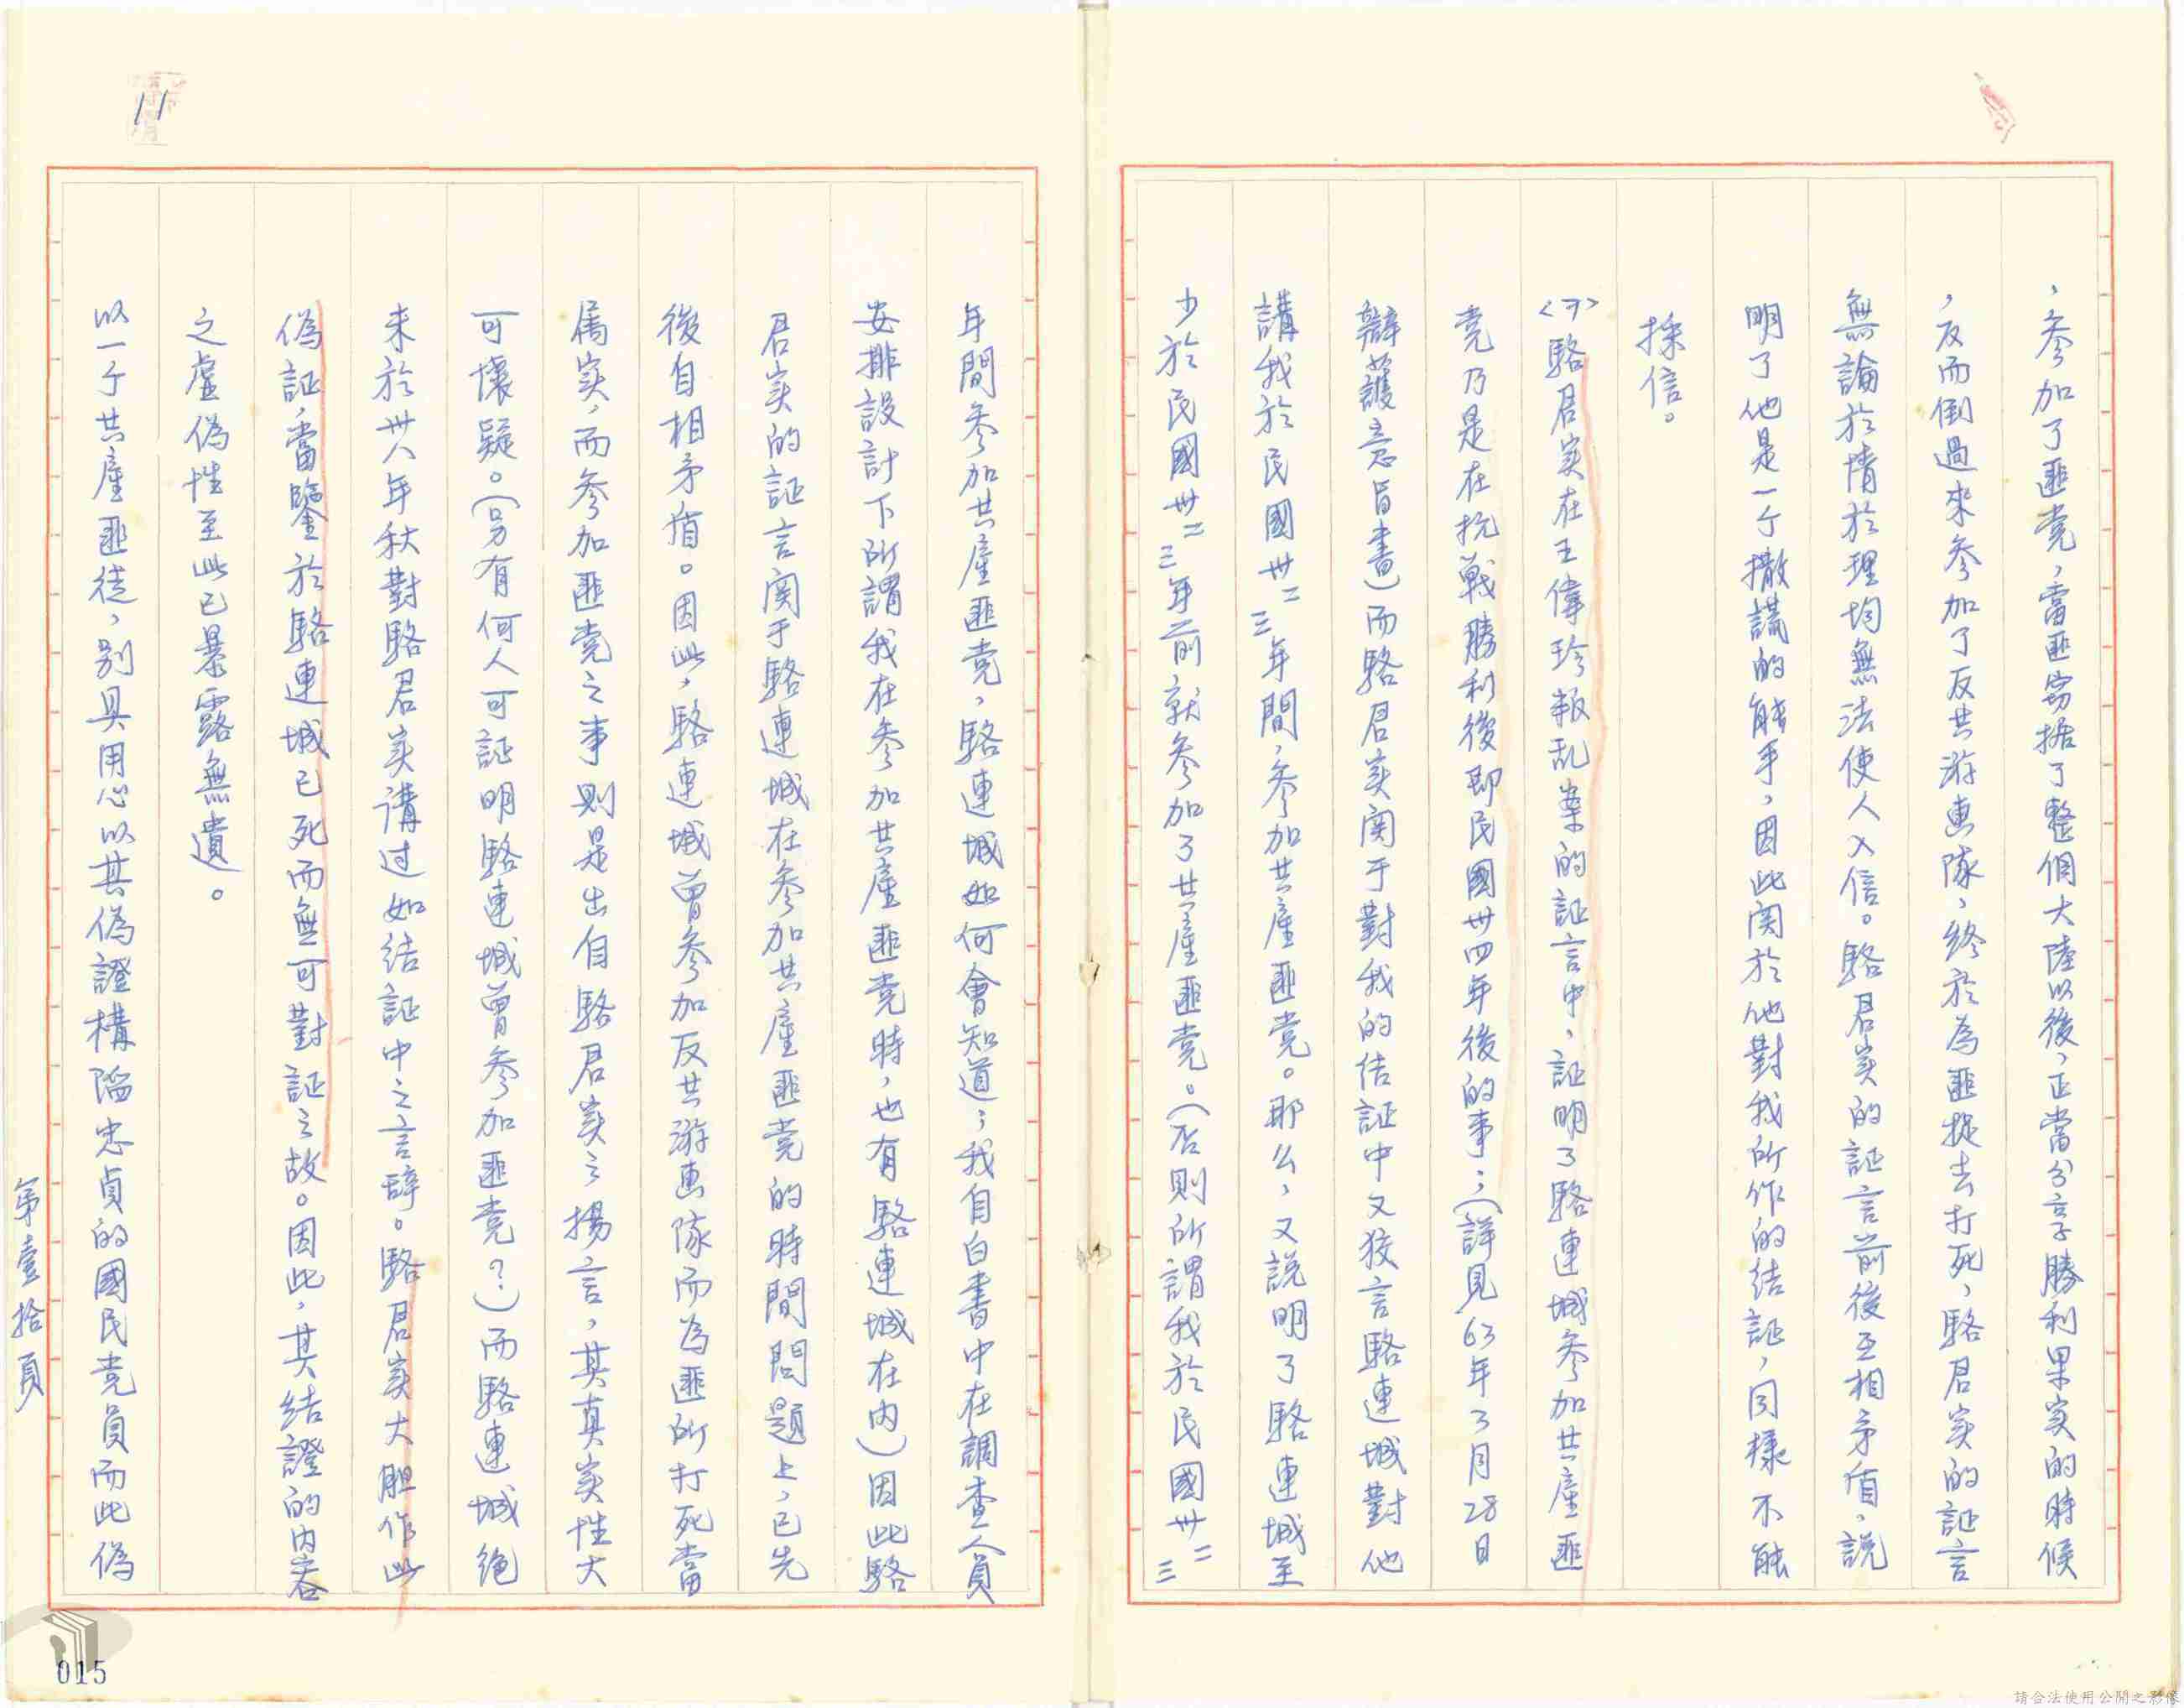 ，参加了匪党，當匪窃据了整個大陸以後，正當分享勝利果实的時候
，反而倒過來参加了反共游击隊，終於為匪捉去打死，駱君实的証言
無論於情於理均無法使人入信。駱君实的証言前後互相矛盾，説
明了他是一个撒謊的能手，因此関於他對我所作的结証，同樣不能
採信。
<ㄗ>駱君实在王偉珍叛乱案的証言中，証明了駱連城参加共産匪
党乃是在抗戰勝利後即民國卅四年後的事；（詳見63年3月28日
辯護意旨書）而駱君实関于對我的结証中又狡言駱連城對他
講我於民國卅二三年間，参加共産匪党。那么，又説明了駱連城至
少於民國卅二三年前就参加了共産匪党。（否則所謂我於民國卅二三
年間参加共産匪党，駱連城如何會知道；我自白書中在調查人員
安排設計下所謂我在参加共産匪党時，也有駱連城在內）因此駱
君实的証言関于駱連城在参加共産匪党的時間問題上，已先
後自相矛盾。因此，駱連城曾参加反共游击隊而為匪所打死當
属实，而参加匪党之事則是出自駱君实之揚言，其真实性大
可懷疑。（另有何人可証明駱連城曾参加匪党？）而駱連城絕
未於卅八年秋對駱君实講过如结証中之言辞。駱君实大胆作此
偽証，當鑒於駱連城已死而無可對証之故。因此，其结證的内容
之虛偽性至此已暴露無遺。
以一个共産匪徒，別具用心以其偽證構陷忠貞的國民党員而此偽
第壹拾頁
11
015
請合法使用公開之影像